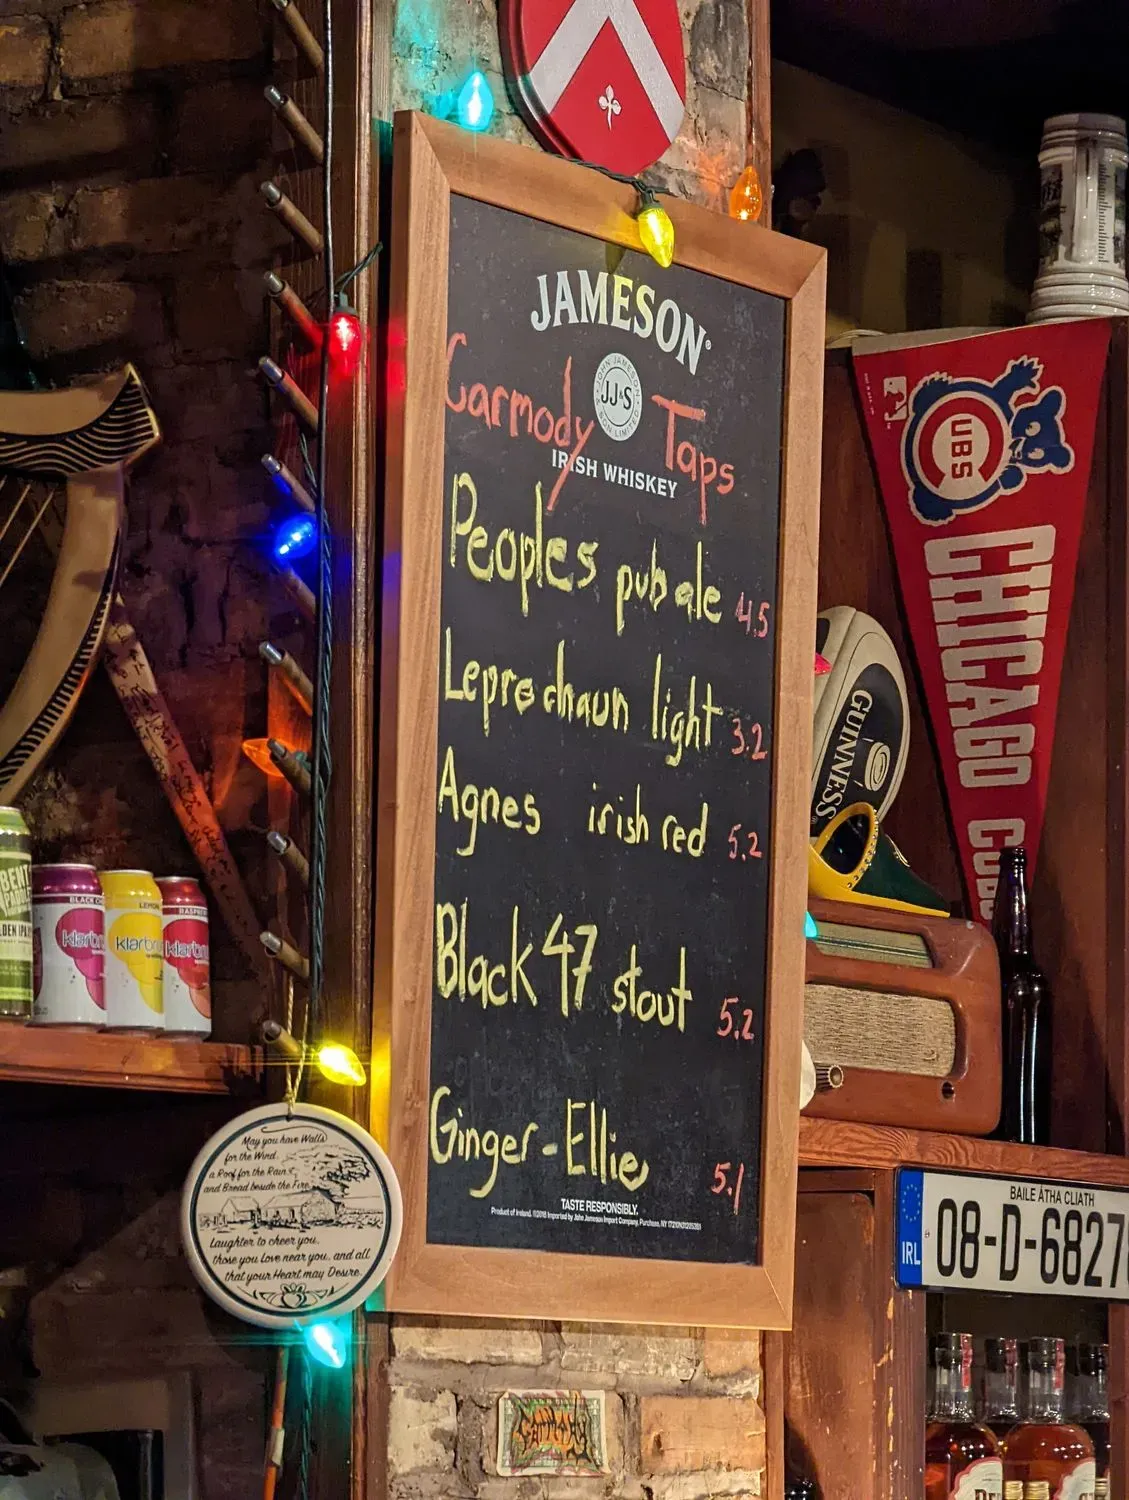 JAMESON®
JOHN JAMESON
JJ&S
& SON LIMITED
Carmody Taps
IRISH WHISKEY
Peoples pub ale 4.5
Leprechaun light 3.2
Agnes irish red 5.2
Black 47 stout 5.2
Ginger-Ellie 5.1
TASTE RESPONSIBLY.
Product of Ireland. ©2018 Imported by John Jameson Import Company, Purchase, NY
May you have Walls
for the Wind,
a Roof for the Rain,
and Bread beside the Fire,
Laughter to cheer you,
those you Love near you, and all
that your Heart may Desire.
BLACK
klarbr
LEMON
klarbr
RASPBER
klarbr
CUBS
CHICAGO CUBS
GUINNESS
BAILE ÁTHA CLIATH
IRL 08-D-6827